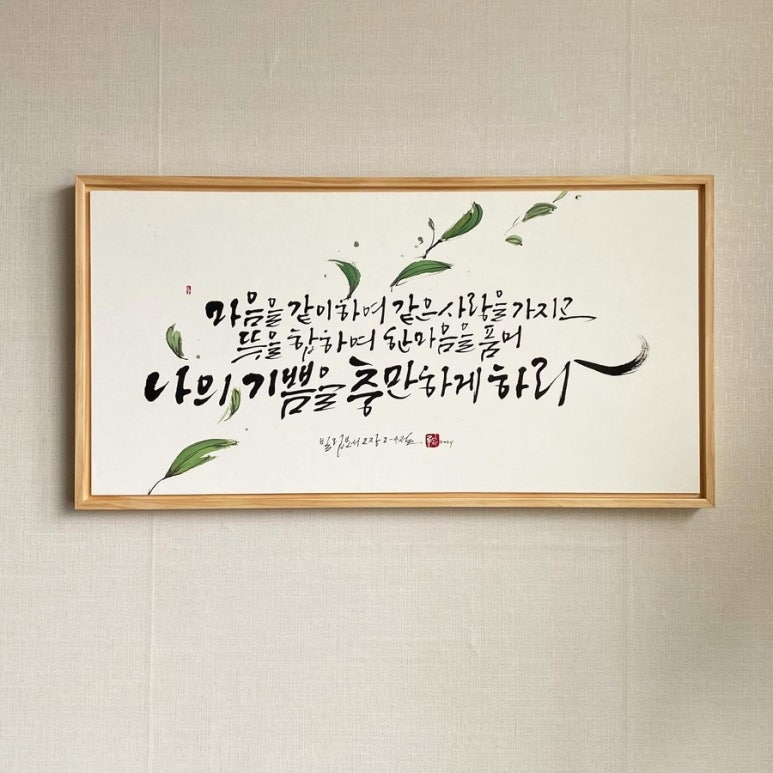 마음을 같이하여 같은 사랑을 가지고
뜻을 합하며 한마음을 품어
나의 기쁨을 충만하게 하라
빌립보서 2장 2-4절